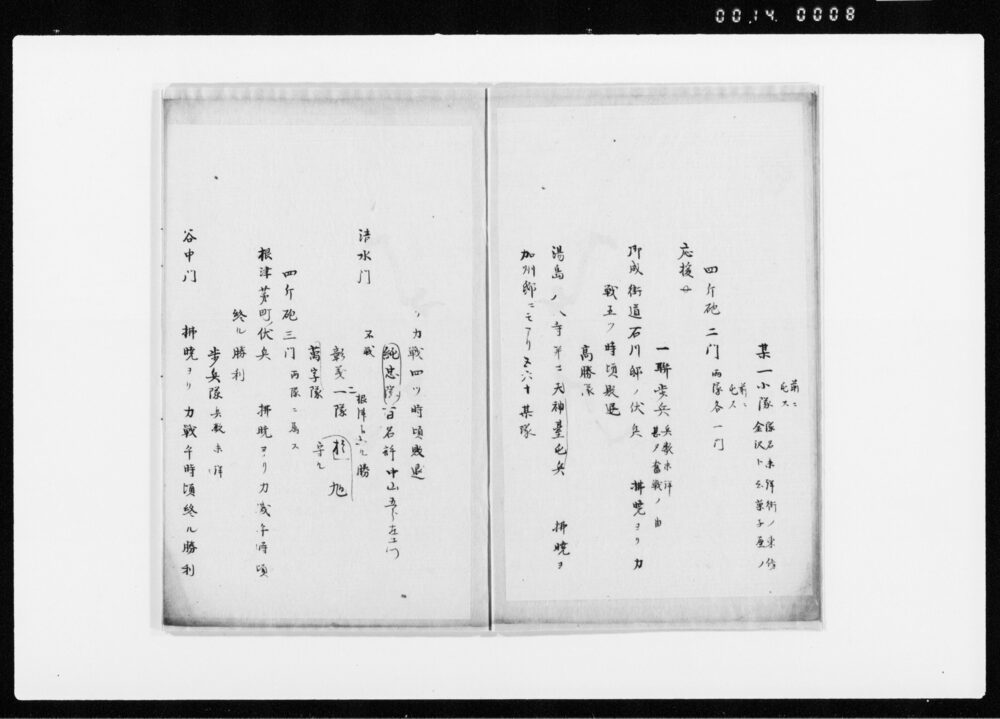 00.14 0008
某一小隊 隊名未詳街ノ東側
前ニ屯ス
金沢ト云菓子屋ノ
前ニ屯ス
四斤砲二门 両隊各一门
応援ニ
一聯歩兵 兵数未詳
甚タ奮戦ノ由
御成街道石川邸ノ伏兵 拂暁ヨリ力
戦五ツ時頃敗退
高勝隊
湯島ノ八寺并ニ天神臺屯兵 拂暁ヨ
加州邸ニモアリ五六十某隊
リ力戦四ツ時頃敗退
純忠隊 百名許 中山
清水门 不戦
根津
勝
彰義一隊
旭
萬字隊 守ル
四斤砲三门 両隊ニ属ス
根津茅町ノ伏兵 拂暁ヨリ力戦午時頃
終ル勝利
歩兵隊 兵数未詳
谷中门 拂暁ヨリ力戦午時頃終ル勝利